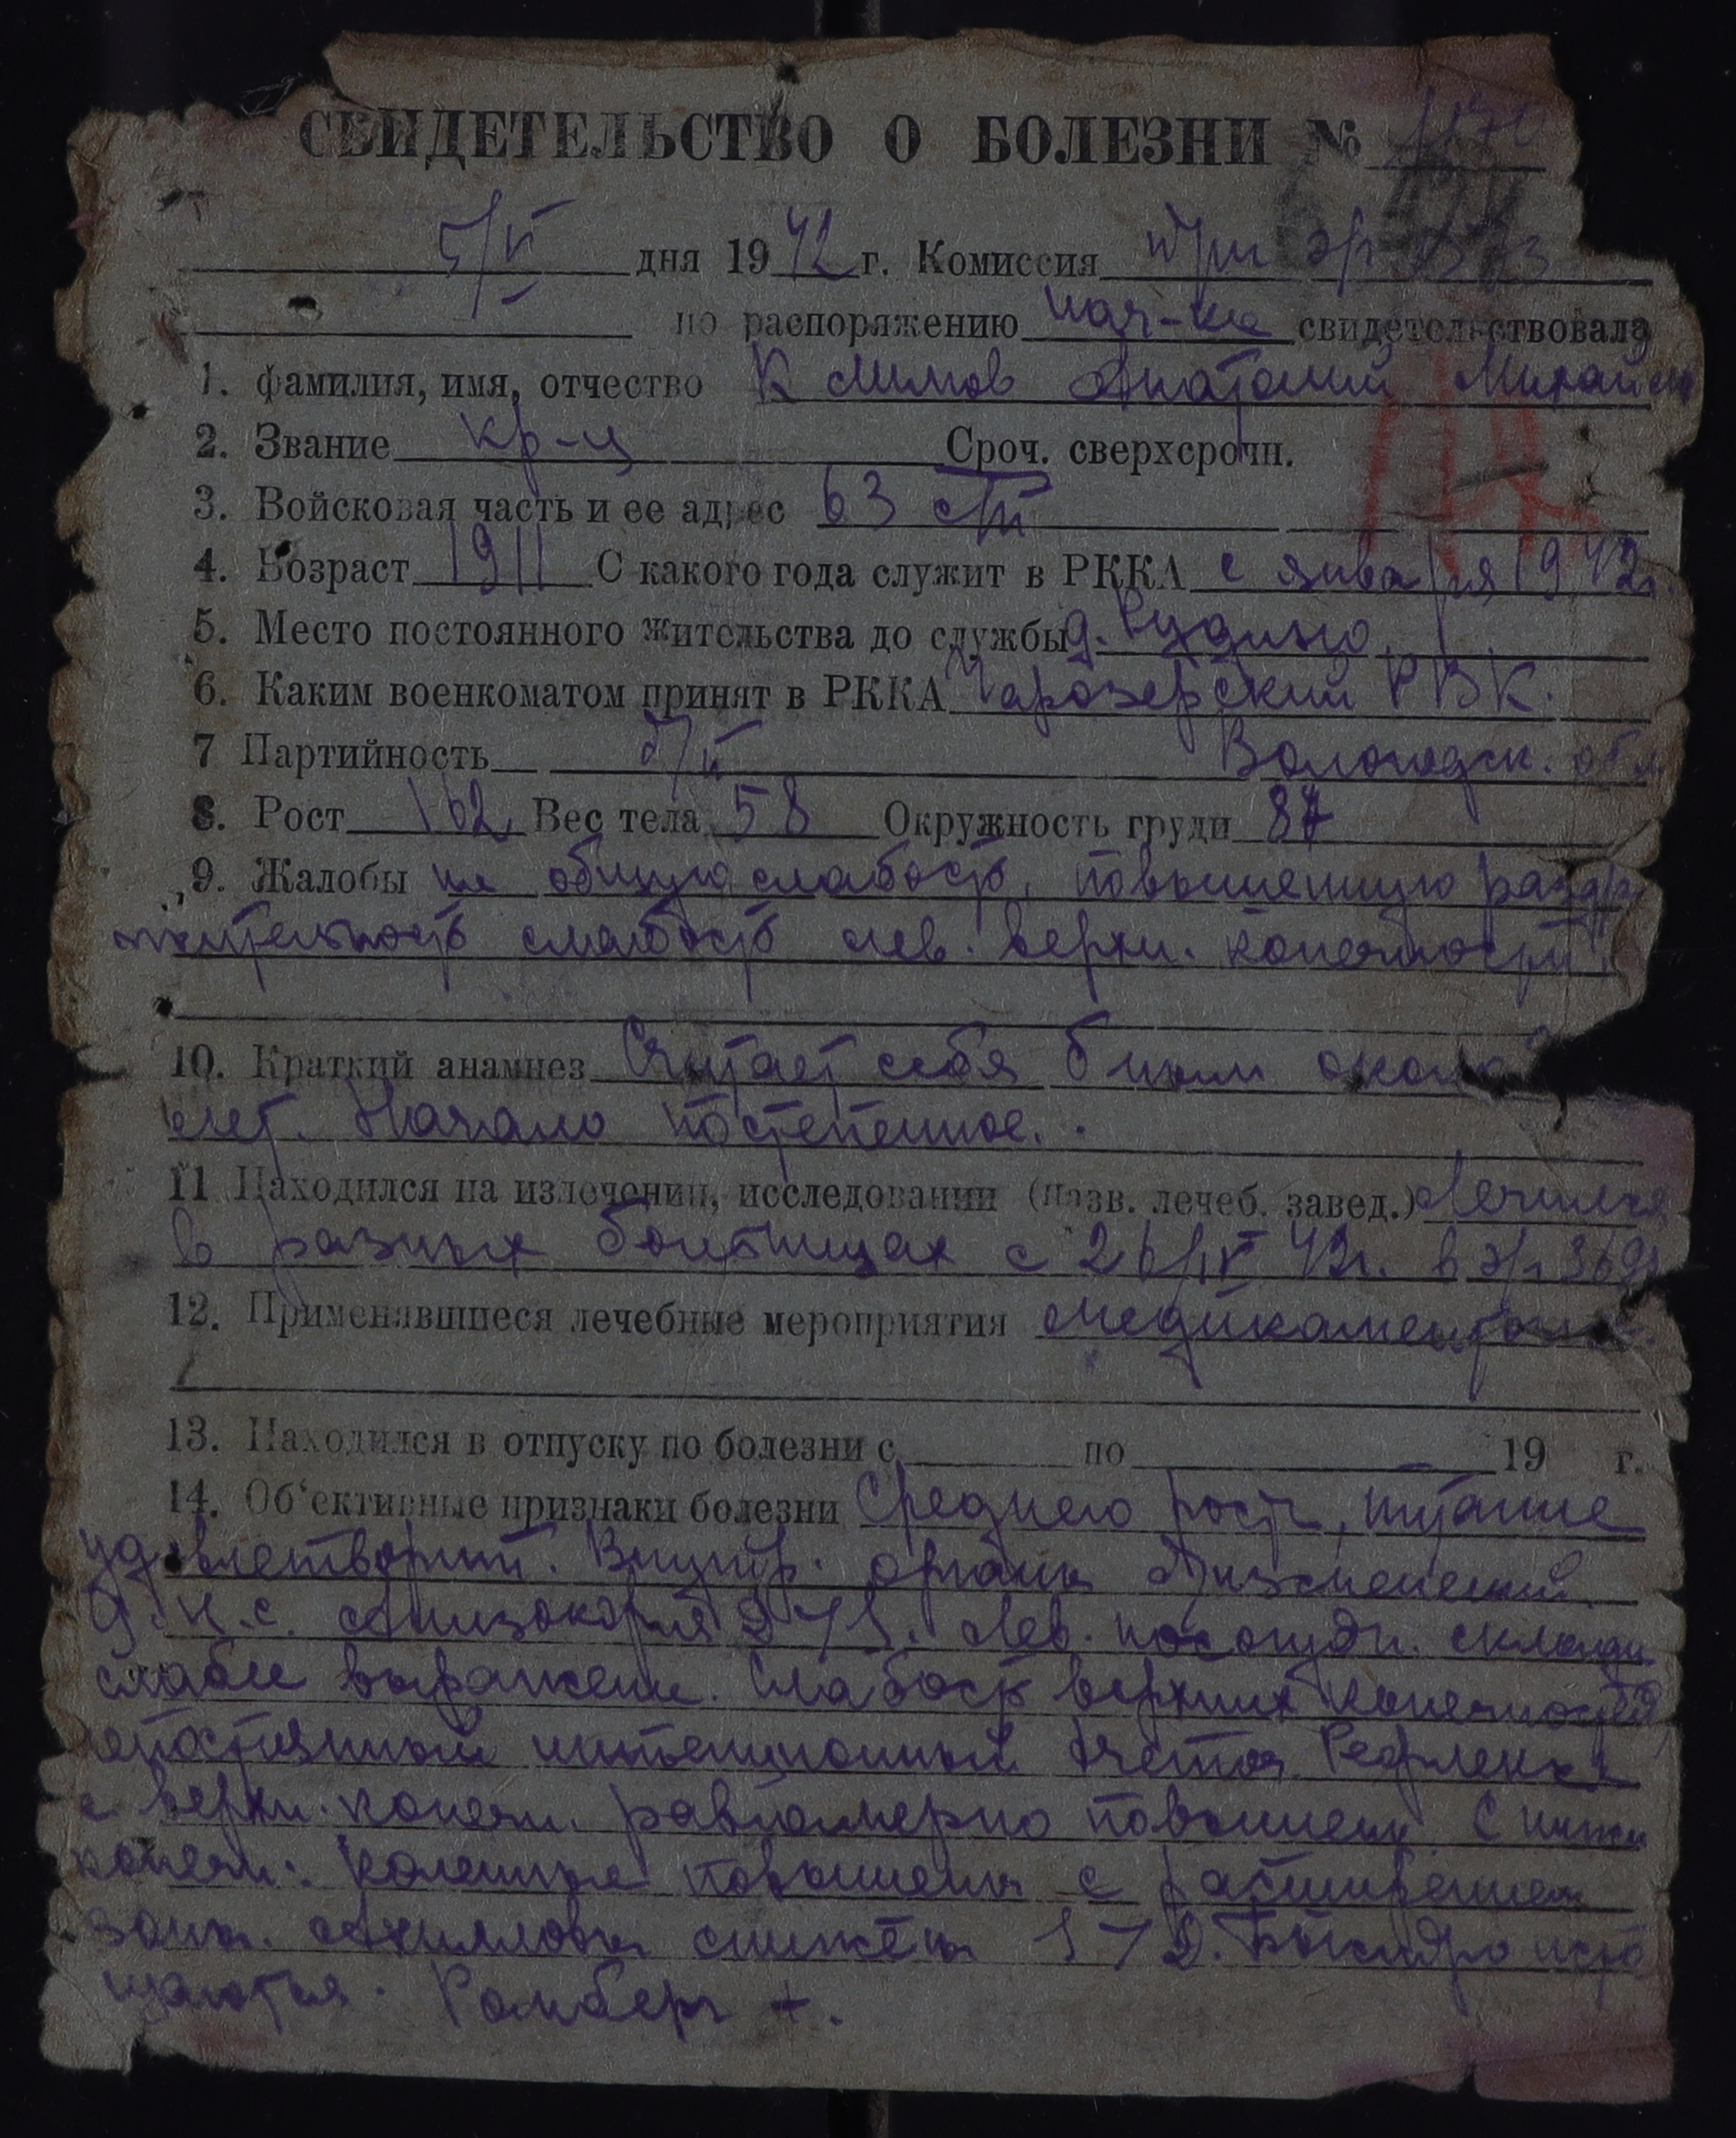 СВИДЕТЕЛЬСТВО О БОЛЕЗНИ № 1170
5/V дня 1942 г. Комиссия при э/г
по распоряжению нач-ка свидетельствовала
1. фамилия, имя, отчество Климов Анатолий Михайло
2. Звание кр-ц Сроч. сверхсрочн.
3. Войсковая часть и ее адрес 63 сп
4. Возраст 1911 С какого года служит в РККА с января 1942 г.
5. Место постоянного жительства до службы д. Рудино
6. Каким военкоматом принят в РККА Чарозерский РВК.
7 Партийность б/п Вологодск. обл
8. Рост 162 Вес тела 58 Окружность груди 87
9. Жалобы на общую слабость, повышенную раздра
жительность слабость лев. верхн. конечности.
10. Краткий анамнез Считает себя больным около
лет. Начало постепенное.
11 Находился на излечении, исследовании (назв. лечеб. завед.) Лечился
в разных больницах с 26/IV 42г. в э/г
12. Применявшиеся лечебные мероприятия медикаментозные.
13. Находился в отпуску по болезни с по 19 г.
14. Об'ективные признаки болезни Среднего роста, питание
удовлетворит. Внутр. органы без изменений
Ц.н.с. Анизокория D > S. Лев. носогубн. складка
слабее выражена. Слабость верхних конечностей,
непостоянный интенционный тремор Рефлексы
с верхн. конечн. равномерно повышены. С нижн
конечн. коленные повышены с расширением
зоны. Ахилловы снижены S > D. Быстро исто
щаются. Ромберг +.